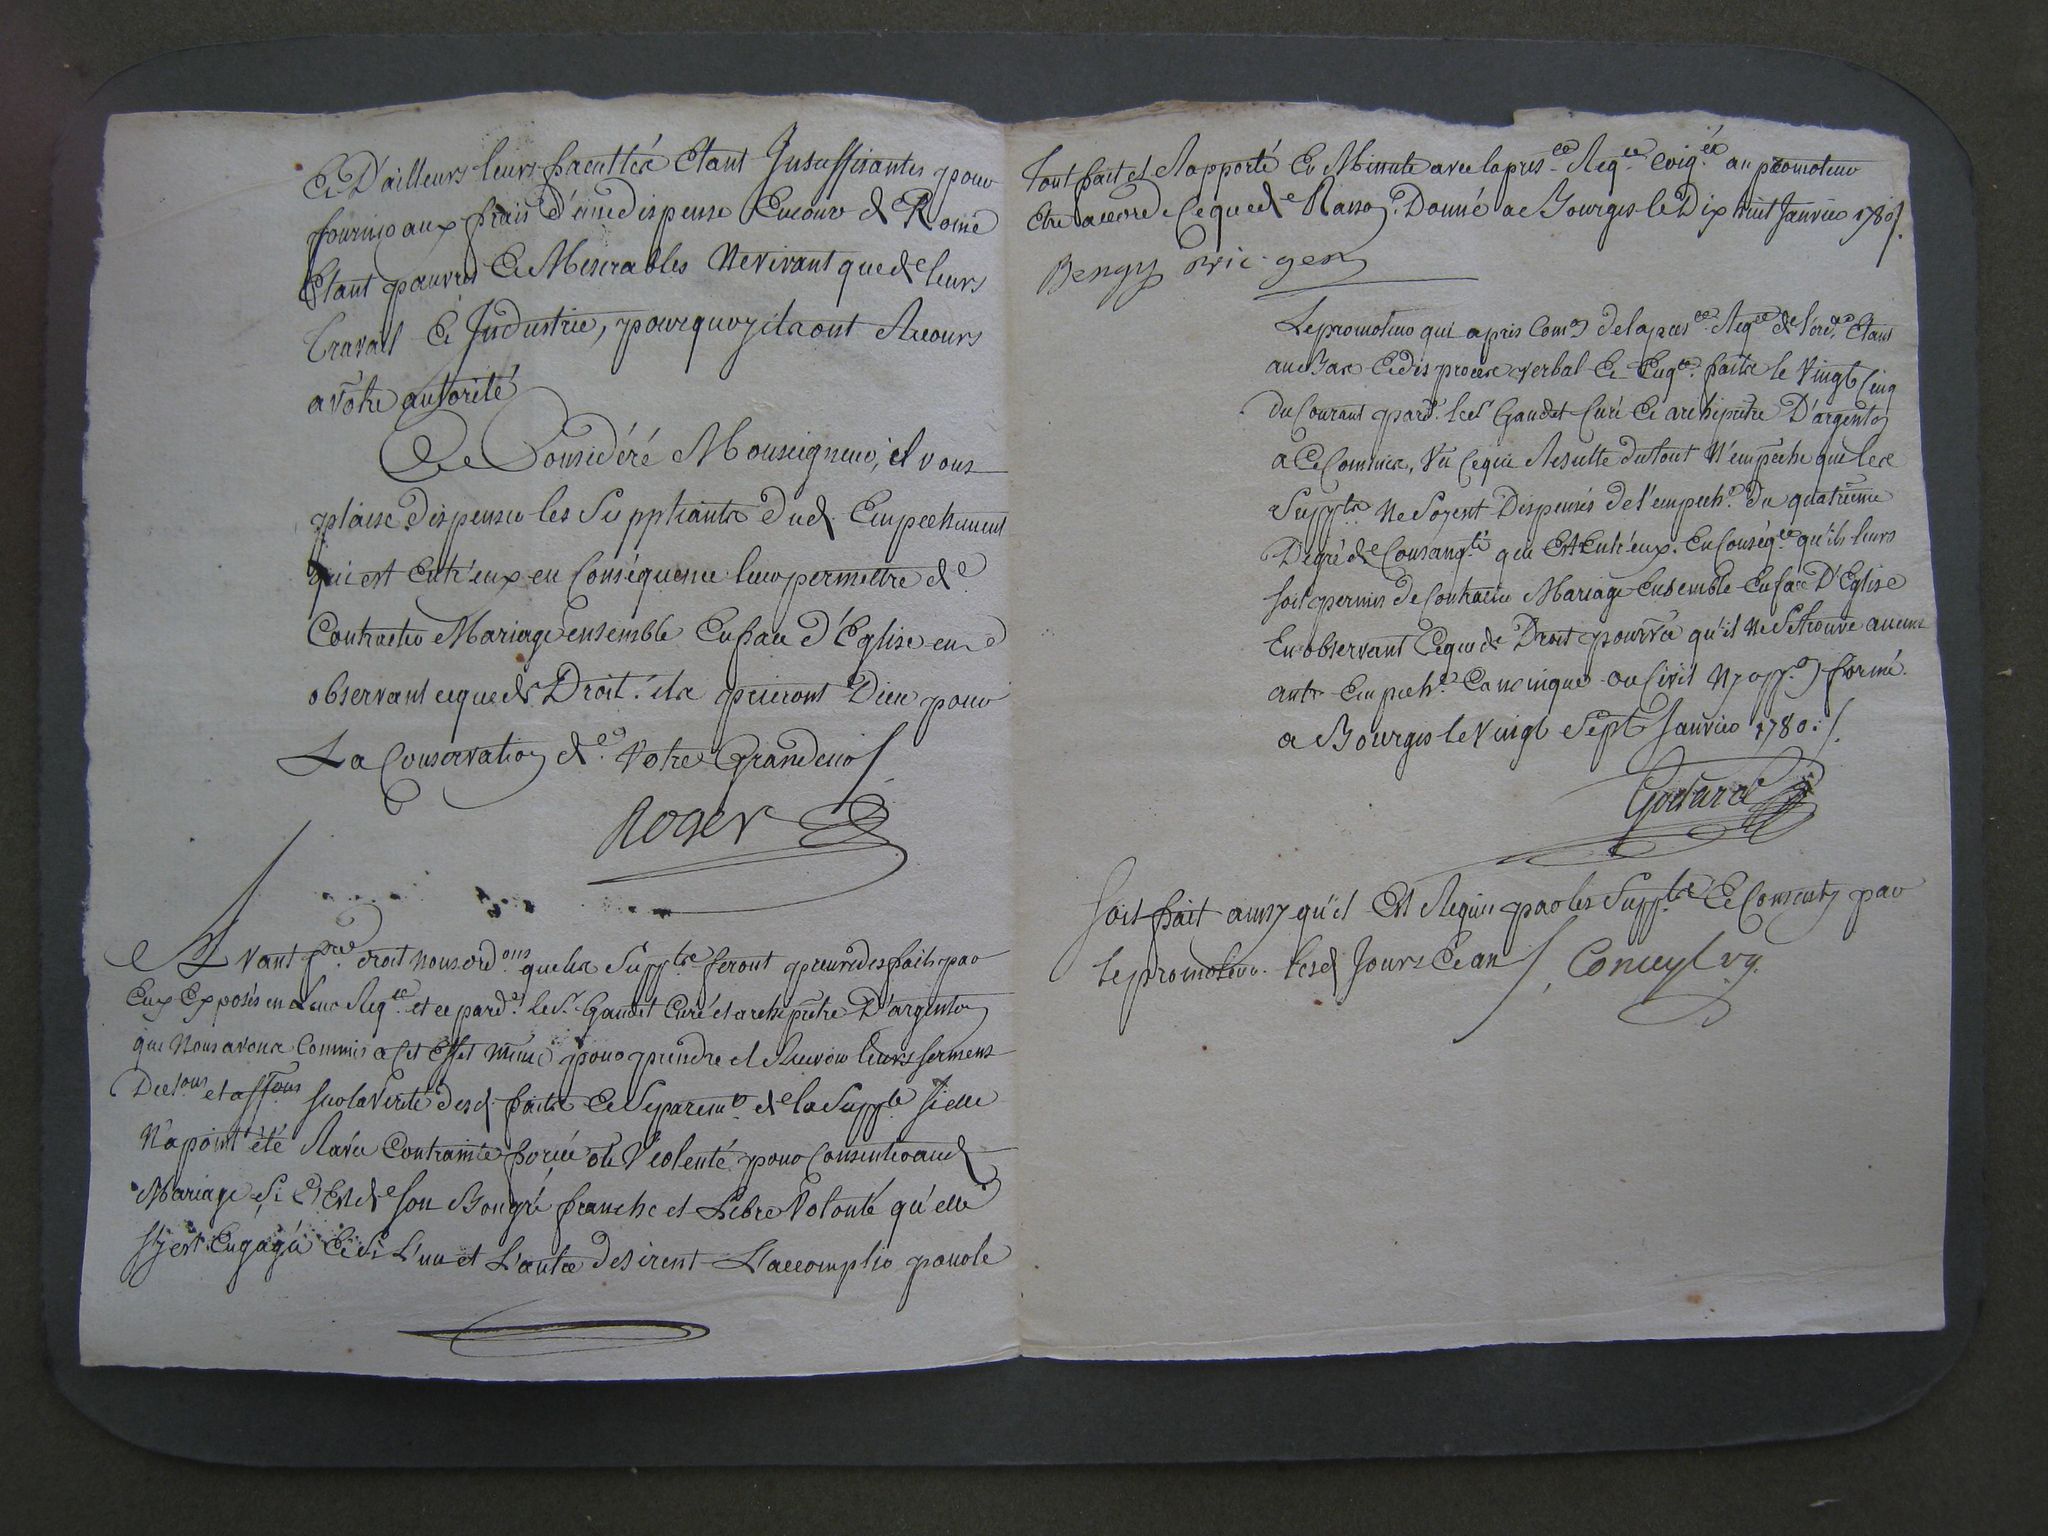 Et D'ailleurs leurs facultés Etant Insuffisantes pour
fournir aux frais d'une dispense En cour de Rome
Etant pauvres Et Miserables Ne vivant que de leurs
travail Et Industrie, pourquoy ils ont Recours
a vôtre autorité
Ce Considéré Monseigneur, il vous
plaise dispenser les Suppliants dud. Empechement
qui est Entr'eux en Conséquence leur permettre de
Contracter Mariage ensemble En face d'Eglise en
observant ce que de Droit. ils prieront Dieu pour
La Conservation de Votre Grandeur /.
Roger
Avant f.re droit nous ord.ons que les Supp.ts feront preuve des faits par
Eux Exposés en Leur Req.te et ce pard.t le S.r Gaudet Curé et archiprêtre D'argenton
que Nous avons Commis a Cet Effet même pour prendre et Recevoir leurs sermens
Decl.ons et aff.ons sur la Verité desd. faits Et Separem.t de la Supp.te Si elle
N'a point été Ravie Contrainte forcée ou Violenté pour Consentir aud.
Mariage, Si C'Est de Son Bongré franche et Libre Volonté qu'elle
S'y est Engagée Et Si L'un et L'autre desirent L'accomplir pour le
Tout fait et Rapporté En Minute avec la pres.te Req.te Coiq.ée au promoteur
Etre accordé Ce que de Raison. Donné a Bourges le Dix huit Janvier 1780 /.
Bengy Vic. gen
Le promoteur qui a pris Com.on de la pres.te Req.te de l'ord.ce Etant
au Bas Et des procès verbal Et Enq.te faits le Vingt Cinq
du Courant pard.t le S.r Gaudet Curé Et archiprêtre D'argenton
a Ce Commis, Vu Ce qui Resulte du tout N'empêche que les
Supp.ts Ne Soyent Dispensés de l'empech.t du quatrieme
Degré de Consang.té qui Est Entr'eux. En Conséq.ce qu'ils leurs
soit permis de Contracter Mariage Ensemble En face D'Eglise
En observant Ce que de Droit pourvu qu'il Ne Se trouve aucuns
autr. Empech.t Canonique ou Civil Ny opp.on formé.
a Bourges le Vingt Sept Janvier 1780 ./.
Godard
Soit fait ainsy qu'il Est Requis par les Supp.ts Et Consenty par
le promoteur. lesd. Jours Et an /.